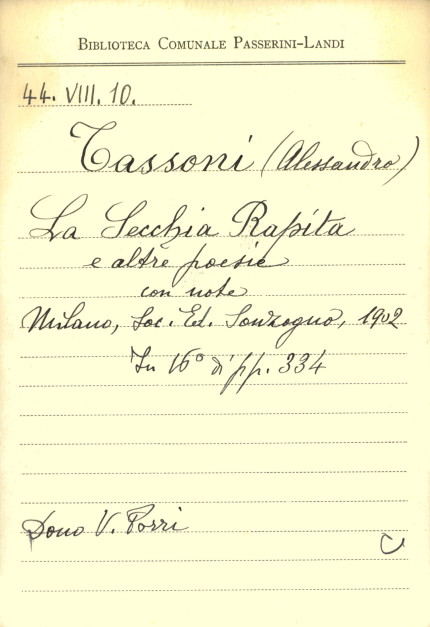 BIBLIOTECA COMUNALE PASSERINI-LANDI
44. VIII. 10.
Tassoni (Alessandro)
La Secchia Rapita
e altre poesie
con note
Milano, Soc. Ed. Sonzogno, 1902
In 16° di pp. 334
Dono V. Porri
C